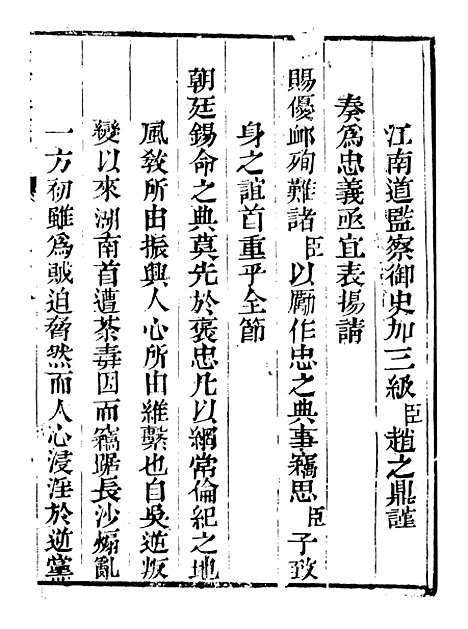 江南道監察御史加三級臣趙之鼎謹
奏為忠義亟宜表揚請
賜優卹殉難諸臣以勵作忠之典事竊思臣子致
身之誼首重乎全節
朝廷錫命之典莫先於褒忠凡以綱常倫紀之地
風敎所由振興人心所由維繫也自吳逆叛
變以來湖南首遭荼毒因而竊踞長沙煽亂
一方初雖為賊迫脅然而人心浸淫於逆黨